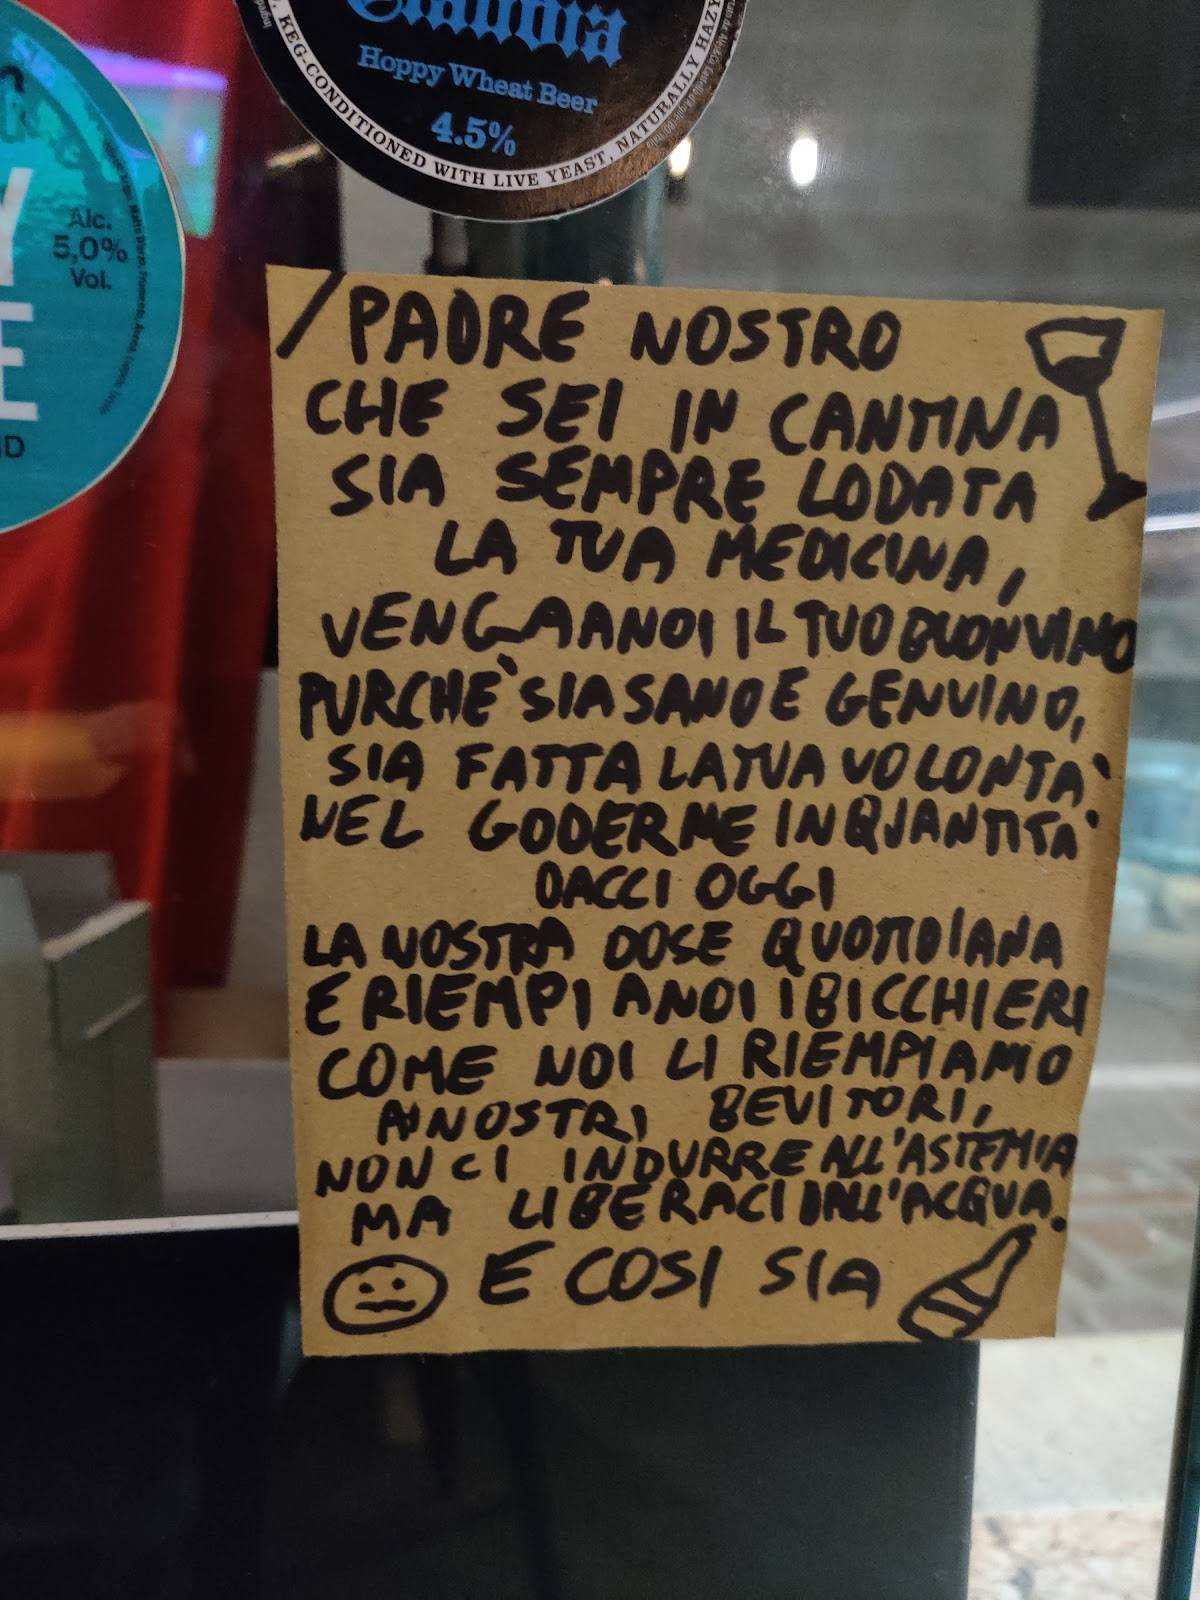 Claudia
Hoppy Wheat Beer
4.5%
KEG-CONDITIONED WITH LIVE YEAST, NATURALLY HAZY
Y
E
Alc.
5,0%
Vol.
/PADRE NOSTRO
CHE SEI IN CANTINA
SIA SEMPRE LODATA
LA TUA MEDICINA,
VENGA A NOI IL TUO BUON VINO
PURCHÈ SIA SANO E GENUINO,
SIA FATTA LA TUA VOLONTA'
NEL GODERNE IN QUANTITA'
DACCI OGGI
LA NOSTRA DOSE QUOTIDIANA
E RIEMPI A NOI I BICCHIERI
COME NOI LI RIEMPIAMO
AI NOSTRI BEVITORI,
NON CI INDURRE ALL'ASTEMIA
MA LIBERACI DALL'ACQUA.
E COSI SIA